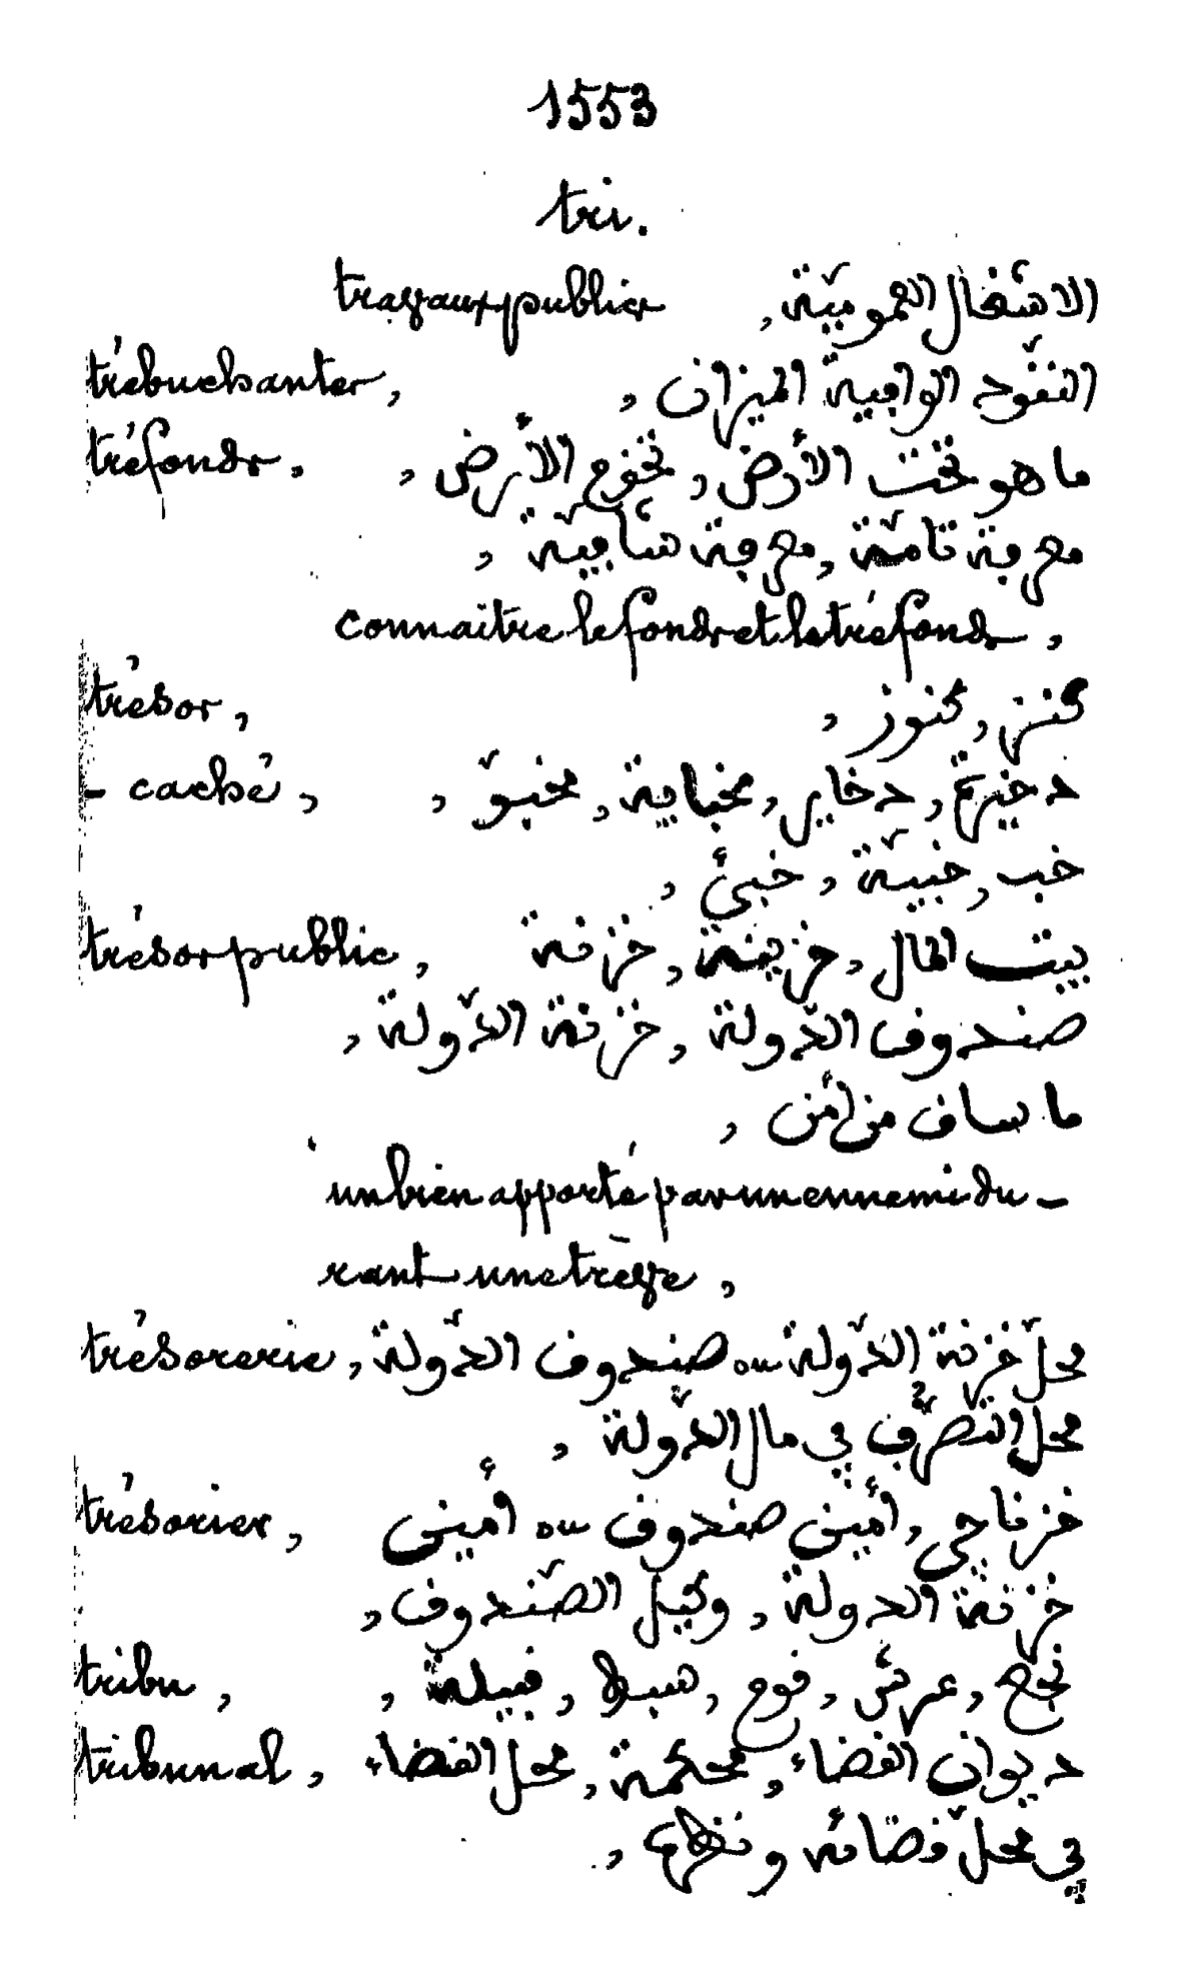 1553
tri.
travaux publics الاشغال العموميّة,
trébuchanter, النقود الوافية الميزان,
tréfonds, ما هو تحت الأرض, تخوم الأرض,
معرفة تامّة, معرفة شافيّة,
connaitre le fonds et le tréfonds,
trésor, كنز, كنوز,
- caché, دخيرة, دخاير, مخباية, مخبوّ,
خب, خبيّة, خبئ,
trésor public, بيت المال, خزينة, خزنة
صندوق الدّولة, خزنة الدّولة,
ما ساق من أمن,
un bien apporté par un ennemi du-
rant une trève,
trésorerie, محلّ خزنة الدّولة ou صندوق الدّولة
محلّ التّصرّف في مال الدّولة,
trésorier, خزناجي, أمين صندوق ou أمين
خزنة الدولة, وكيل الصّندوق,
tribu, نجع, عرش, قوم, قبيلة,
tribunal, ديوان القضاء, محكمة, محل القضاء,
في محلّ قضائه